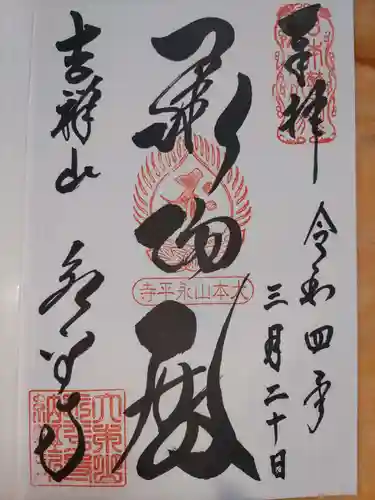 奉拝
令和四年
三月二十日
承陽殿
大本山永平寺
吉祥山
永平寺